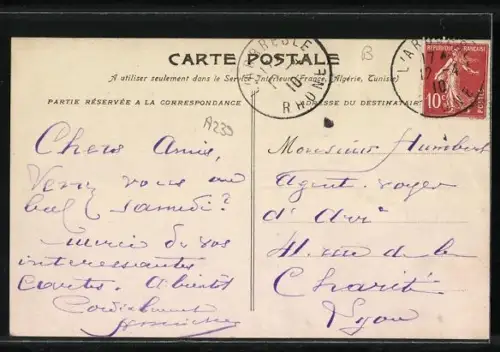 CARTE POSTALE
A utiliser seulement dans le Service Intérieur (France, Algérie, Tunisie)
PARTIE RÉSERVÉE A LA CORRESPONDANCE
ADRESSE DU DESTINATAIRE
A239
B
L'ARBRESLE
10
RHONE
L'AR
17
10
RÉPUBLIQUE FRANÇAISE
10c
POSTES
Chers Amis,
Venez vous au
bal samedi?
Merci de vos
interessantes
cartes. A bientôt
Cordialement
Monsieur Humbert
Agent-voyer
d'Arr^t
41. rue de la
Charité
Lyon